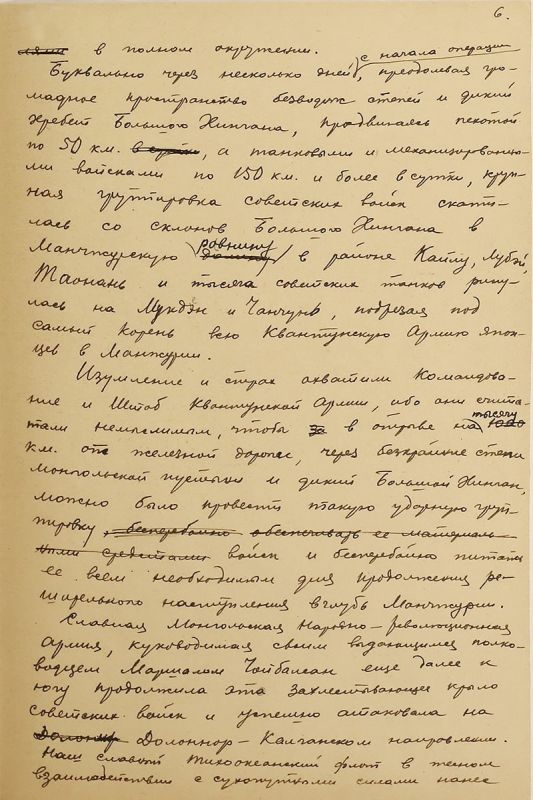 6.
в полном окружении.
с начала операции
Буквально через несколько дней, преодолевая гро-
мадное пространство безводных степей и дикий
хребет Большого Хингана, продвигаясь пехотой
по 50 км. в сутки, а танковыми и механизированны-
ми войсками по 150 км. и более в сутки, круп-
ная группировка советских войск скати-
лась со склонов Большого Хингана в
равнину
Манчжурскую долину в районе Кайлу, Лубэй,
Таонань и тысяча советских танков рину-
лась на Мукдэн и Чанчунь, подрезая под
самый корень всю Квантунскую Армию япон-
цев в Манжурии.
Изумление и страх охватили Командова-
ние и Штаб Квантунской Армии, ибо они счита-
тысячу
тали немыслимым, чтобы за в отрыве на 1000
км. от железной дороги, через безкрайние степи
монгольской пустыни и дикий Большой Хинган,
можно было провести такую ударную груп-
пировку, бесперебойно обеспечивать ее материаль-
ными средствами войск и бесперебойно питать
ее всем необходимым для продолжения ре-
шительного наступления вглубь Манчжурии.
Славная Монгольская Народно-Революционная
Армия, руководимая своим выдающимся полко-
водцем Маршалом Чойбалсан еще далее к
югу продолжила это захлестывающее крыло
советских войск и успешно атаковала на
Долоннор Долоннор-Калганском направлении.
Наш славный Тихоокеанский флот в тесном
взаимодействии с сухопутными силами нанес